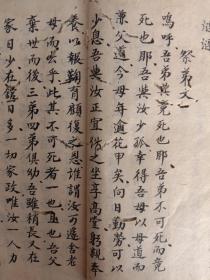 祭弟文一
嗚呼吾弟其竟死也耶吾弟不可死而竟
死也耶吾與汝少孤幸得吾母以母道而
兼父道今母年逾花甲矣向日勤勞可以
少息吾與汝正宜侍之坐享高堂躬親奉
養以報鞠育顧復之恩誰謂汝可遽舍老
母而去乎此其不可死者一也且也吾父
棄世而後三弟四弟俱幼吾雖稍長又在
家日少在館日多一切家政唯汝一人力